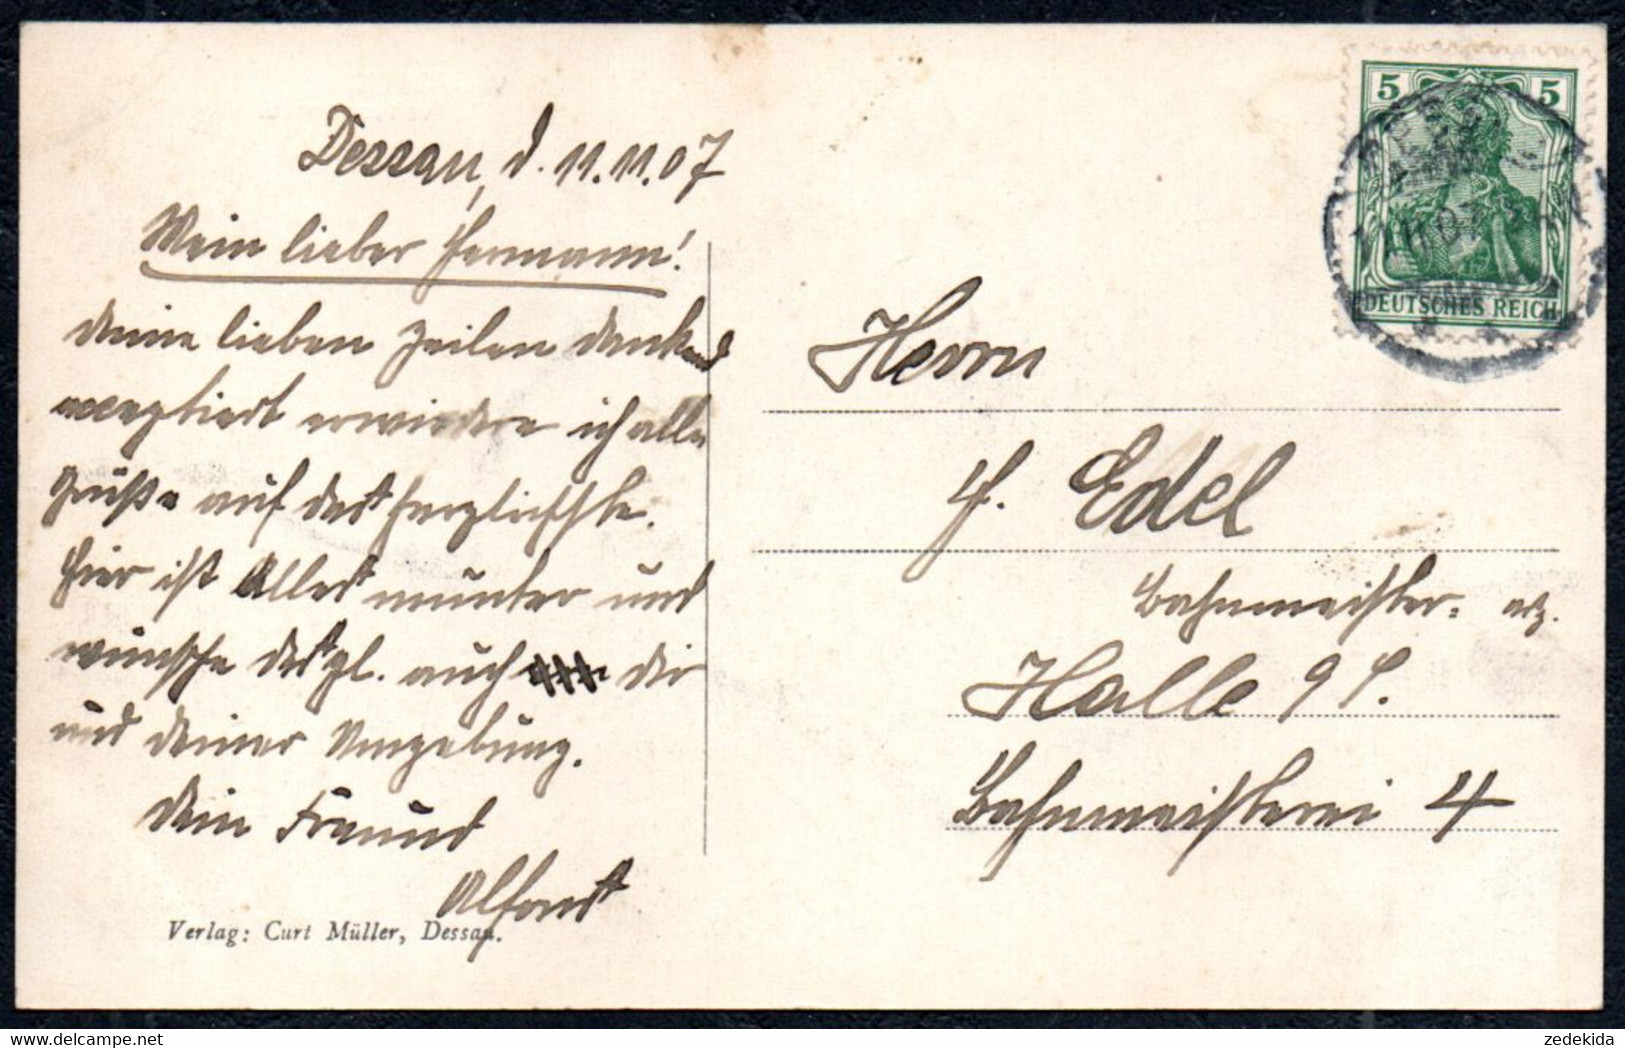 Dessau, d. 11.11.07
Mein lieber Hermann!
Deine lieben Zeilen dankend
acceptiert erwiedere ich alle
Grüße auf das herzlichste.
Hier ist Alles munter und
wünsche desgl. auch dir
und deiner Umgebung.
Dein Freund
Alfons
Verlag: Curt Müller, Dessau.
5 5
DEUTSCHES REICH
Herrn
H. Edel
Bahnmeister-
Halle 9 S.
Bahnmeisterei 4
zedekida